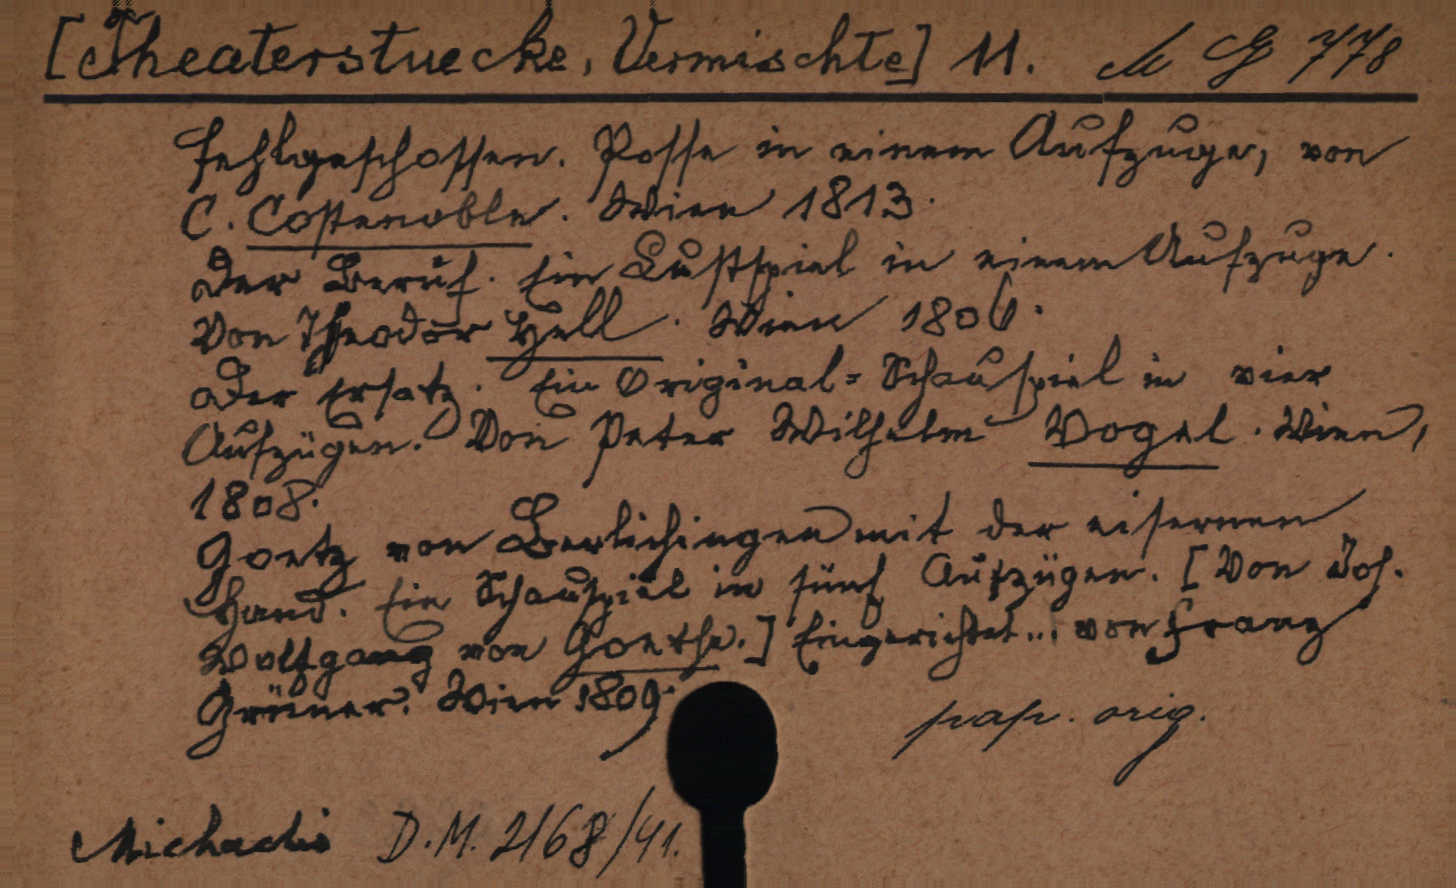 [Theaterstuecke, Vermischte] 11. M G 778
Fehlgeschossen. Posse in einem Aufzuge, von
C. Costenoble. Wien 1813.
Der Beruf. Ein Lustspiel in einem Aufzuge.
Von Theodor Hell. Wien 1806.
Der Ersatz. Ein Original-Schauspiel in vier
Aufzügen. Von Peter Wilhelm Vogel. Wien,
1808.
Goetz von Berlichingen mit der eisernen
Hand. Ein Schauspiel in fünf Aufzügen. [Von Joh.
Wolfgang von Goethe.] Eingerichtet... von Franz
Grüner. Wien 1809.
pap. orig.
Michaelis D.M. 2168/41.